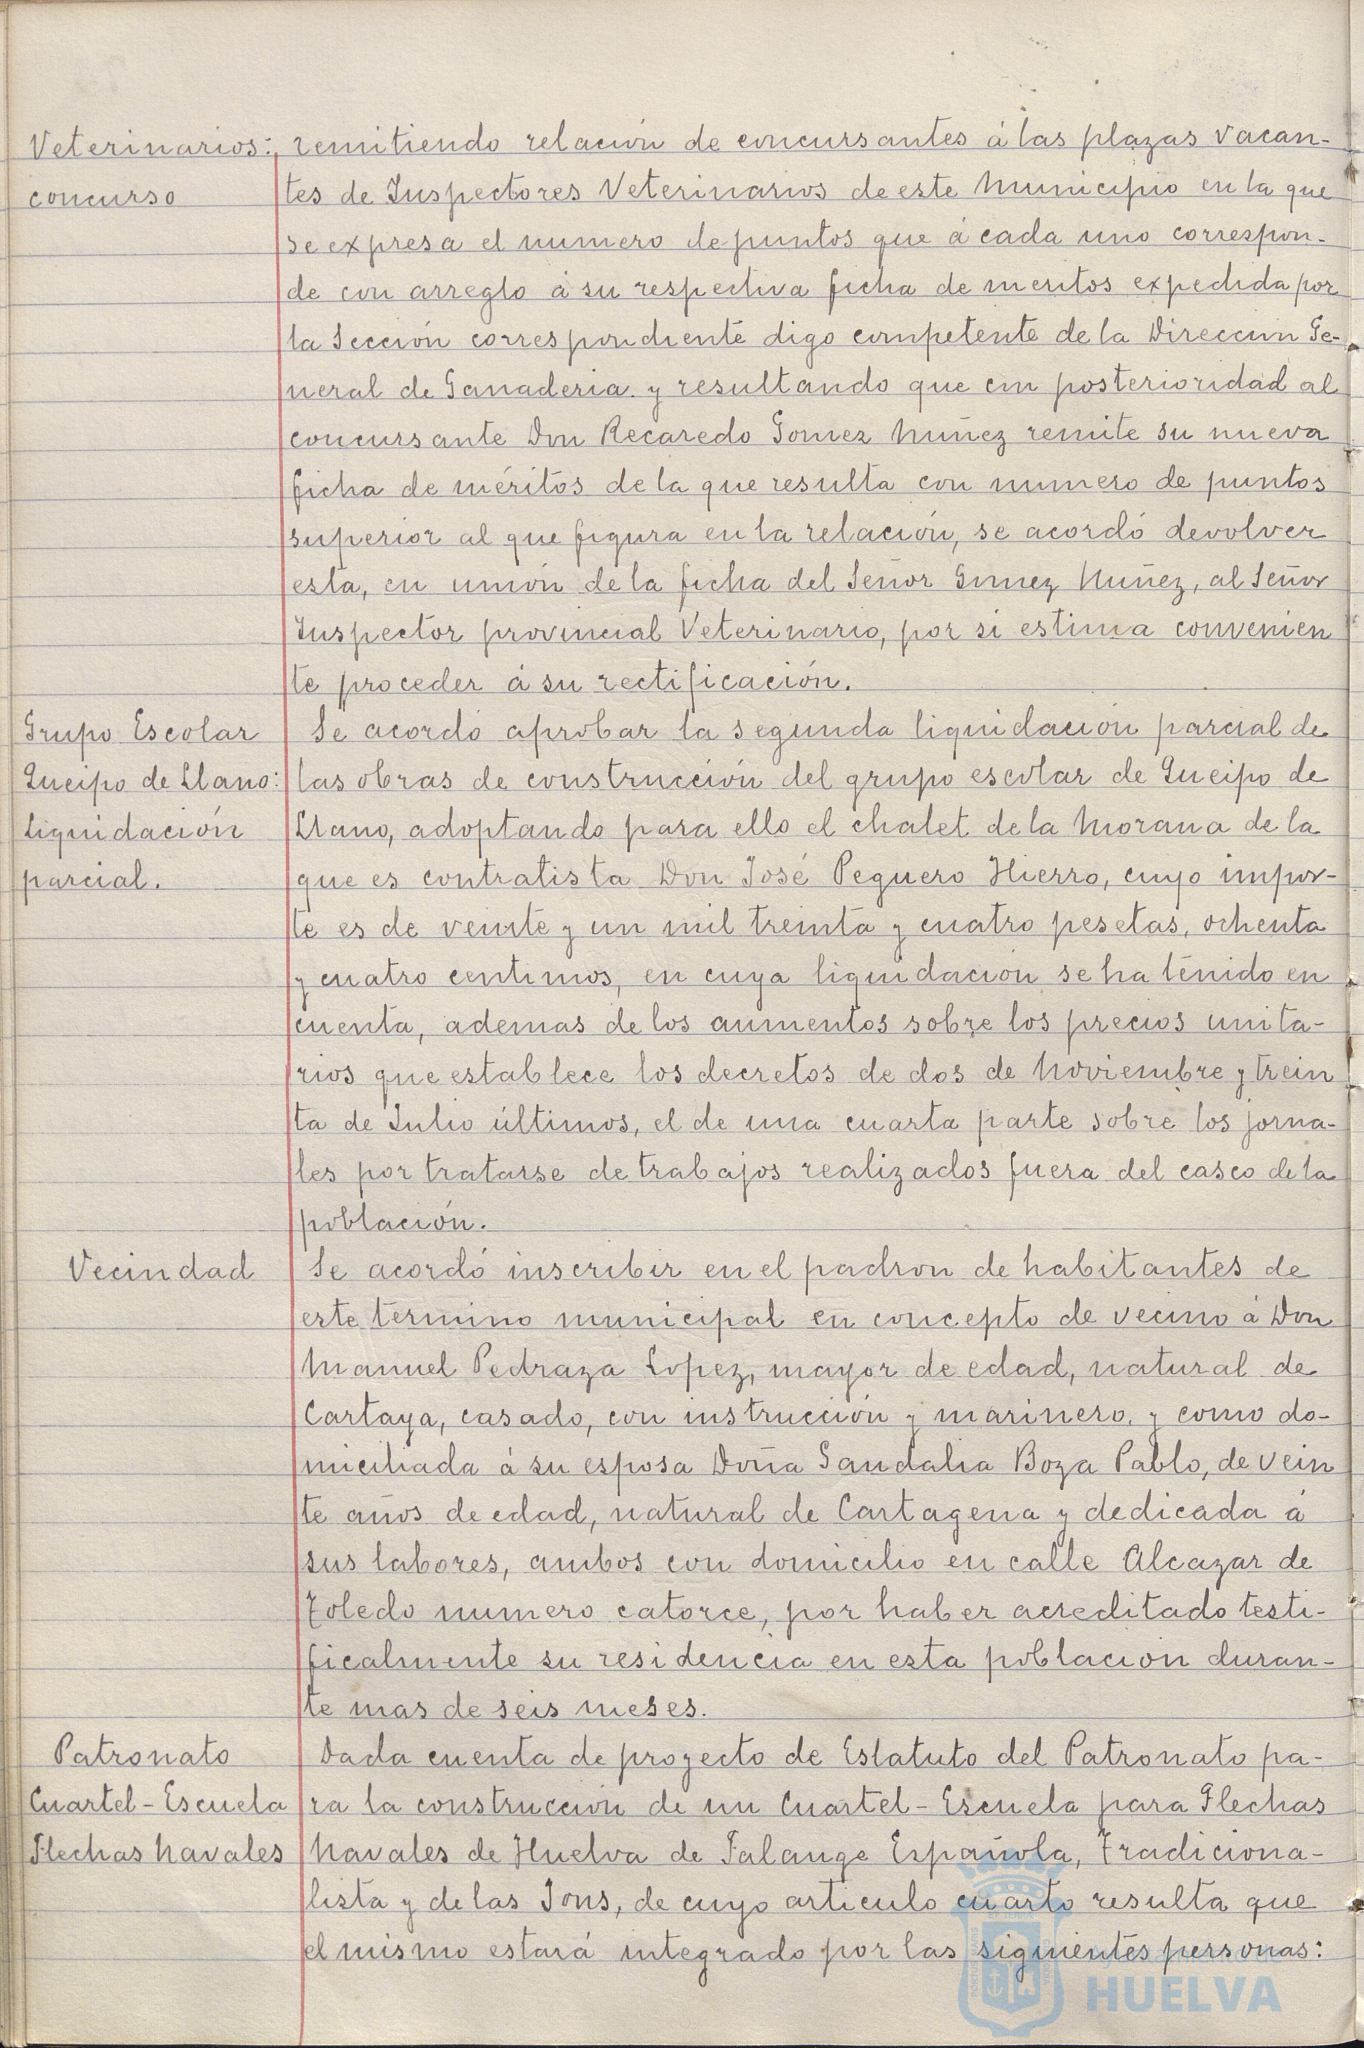 Veterinarios:
concurso
remitiendo relación de concursantes á las plazas vacan-
tes de Inspectores Veterinarios de este Municipio en la que
se expresa el numero de puntos que á cada uno correspon-
de con arreglo á su respectiva ficha de meritos expedida por
la Sección correspondiente digo competente de la Direccion Ge-
neral de Ganaderia. y resultando que con posterioridad al
concursante Don Recaredo Gomez Nuñez remite su nueva
ficha de méritos de la que resulta con numero de puntos
superior al que figura en la relación, se acordó devolver
esta, en unión de la ficha del Señor Gomez Nuñez, al Señor
Inspector provincial Veterinario, por si estima convenien
te proceder á su rectificación.
Grupo Escolar
Queipo de Llano:
liquidación
parcial.
Se acordó aprobar la segunda liquidación parcial de
las obras de construcción del grupo escolar de Queipo de
Llano, adoptando para ello el chalet de la Morana de la
que es contratista Don José Peguero Hierro, cuyo impor-
te es de veinte y un mil treinta y cuatro pesetas, ochenta
y cuatro centimos, en cuya liquidacion se ha tenido en
cuenta, ademas de los aumentos sobre los precios unita-
rios que establece los decretos de dos de Noviembre y trein
ta de Julio últimos, el de una cuarta parte sobre los jorna-
les por tratarse de trabajos realizados fuera del casco de la
población.
Vecindad
Se acordó inscribir en el padron de habitantes de
este termino municipal en concepto de vecino á Don
Manuel Pedraza Lopez, mayor de edad, natural de
Cartaya, casado, con instrucción y marinero, y como do-
miciliada á su esposa Doña Sandalia Boza Pablo, de vein
te años de edad, natural de Cartagena y dedicada á
sus labores, ambos con domicilio en calle Alcazar de
Toledo numero catorce, por haber acreditado testi-
ficalmente su residencia en esta poblacion duran-
te mas de seis meses.
Patronato
Cuartel-Escuela
Flechas Navales
Dada cuenta de proyecto de Estatuto del Patronato pa-
ra la construccion de un Cuartel-Escuela para Flechas
Navales de Huelva de Falange Española, Tradiciona-
lista y de las Jons, de cuyo articulo cuarto resulta que
el mismo estará integrado por las siguientes personas:
HUELVA